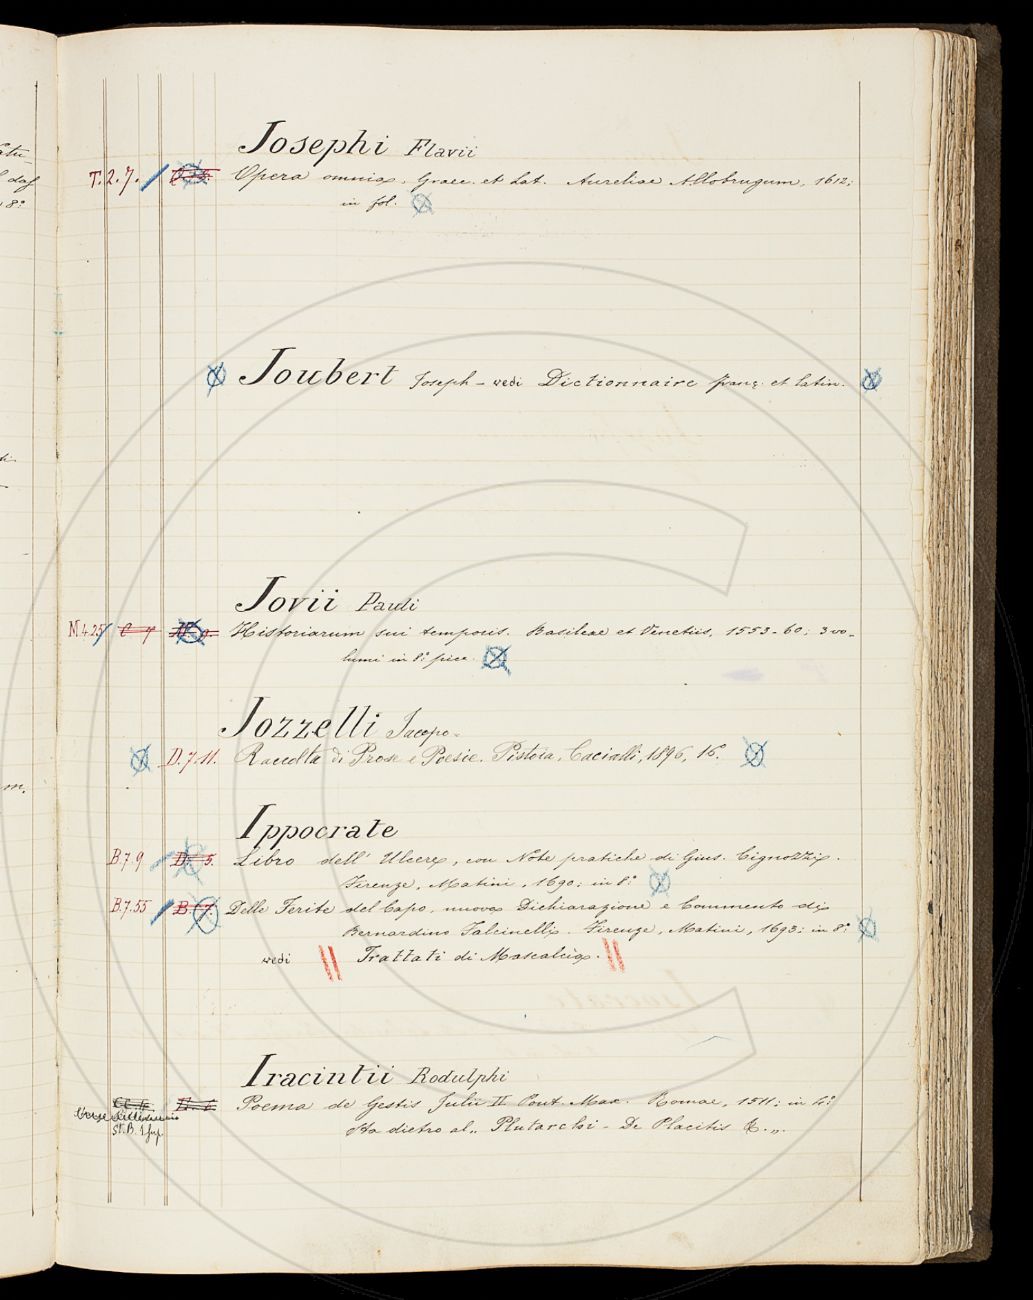 Josephi Flavii
T. 2. 7. Opera omnia. Graec. et Lat. Aureliae Allobrugum, 1612;
in fol.
Joubert Joseph - vedi Dictionnaire franç. et latin.
Jovii Pauli
M. 4. 25 Historiarum sui temporis. Basileae et Venetiis, 1553-60; 3 vo-
lumi in 8.° picc.
Jozzelli Jacopo.
D. 7. 11. Raccolta di Prose e Poesie. Pistoia, Cacialli, 1896, 16.°
Ippocrate
B. 7. 9 D. 5. Libro dell' Ulcere, con Note pratiche di Gius. Cignozzi.
Firenze, Matini, 1690; in 8.°
B. 7. 55 B. 7. Delle Ferite del Capo, nuova Dichiarazione e Commento di
Bernardino Falcinelli. Firenze, Matini, 1693; in 8.°
vedi Trattati di Mascalcia.
Iracintii Rodulphi
Poema de Gestis Julii II Pont. Max. Romae, 1511; in 4.°
Sta dietro al „ Plutarchi - De Placitis &. „